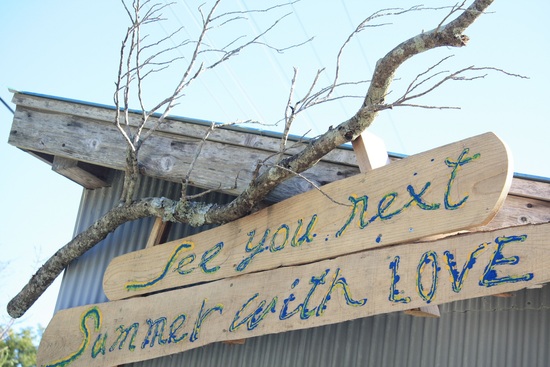 See you next
Summer with LOVE